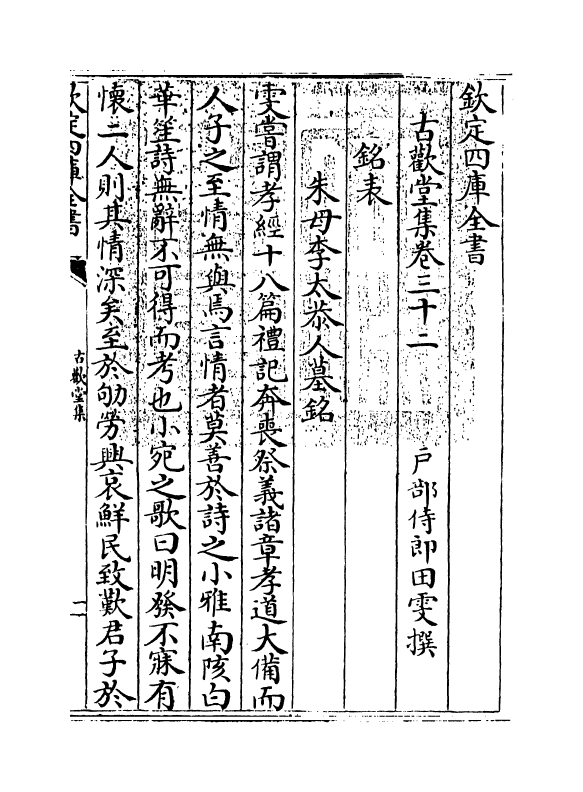 欽定四庫全書
古歡堂集卷三十二
戶部侍郎田雯撰
銘表
朱母李太恭人墓銘
雯嘗謂孝經十八篇禮記奔喪祭義諸章孝道大備而
人子之至情無與焉言情者莫善於詩之小雅南陔白
華笙詩無辭不可得而考也小宛之歌曰明發不寐有
懷二人則其情深矣至於劬勞興哀鮮民致歎君子於
欽定四庫全書
古歡堂集
一